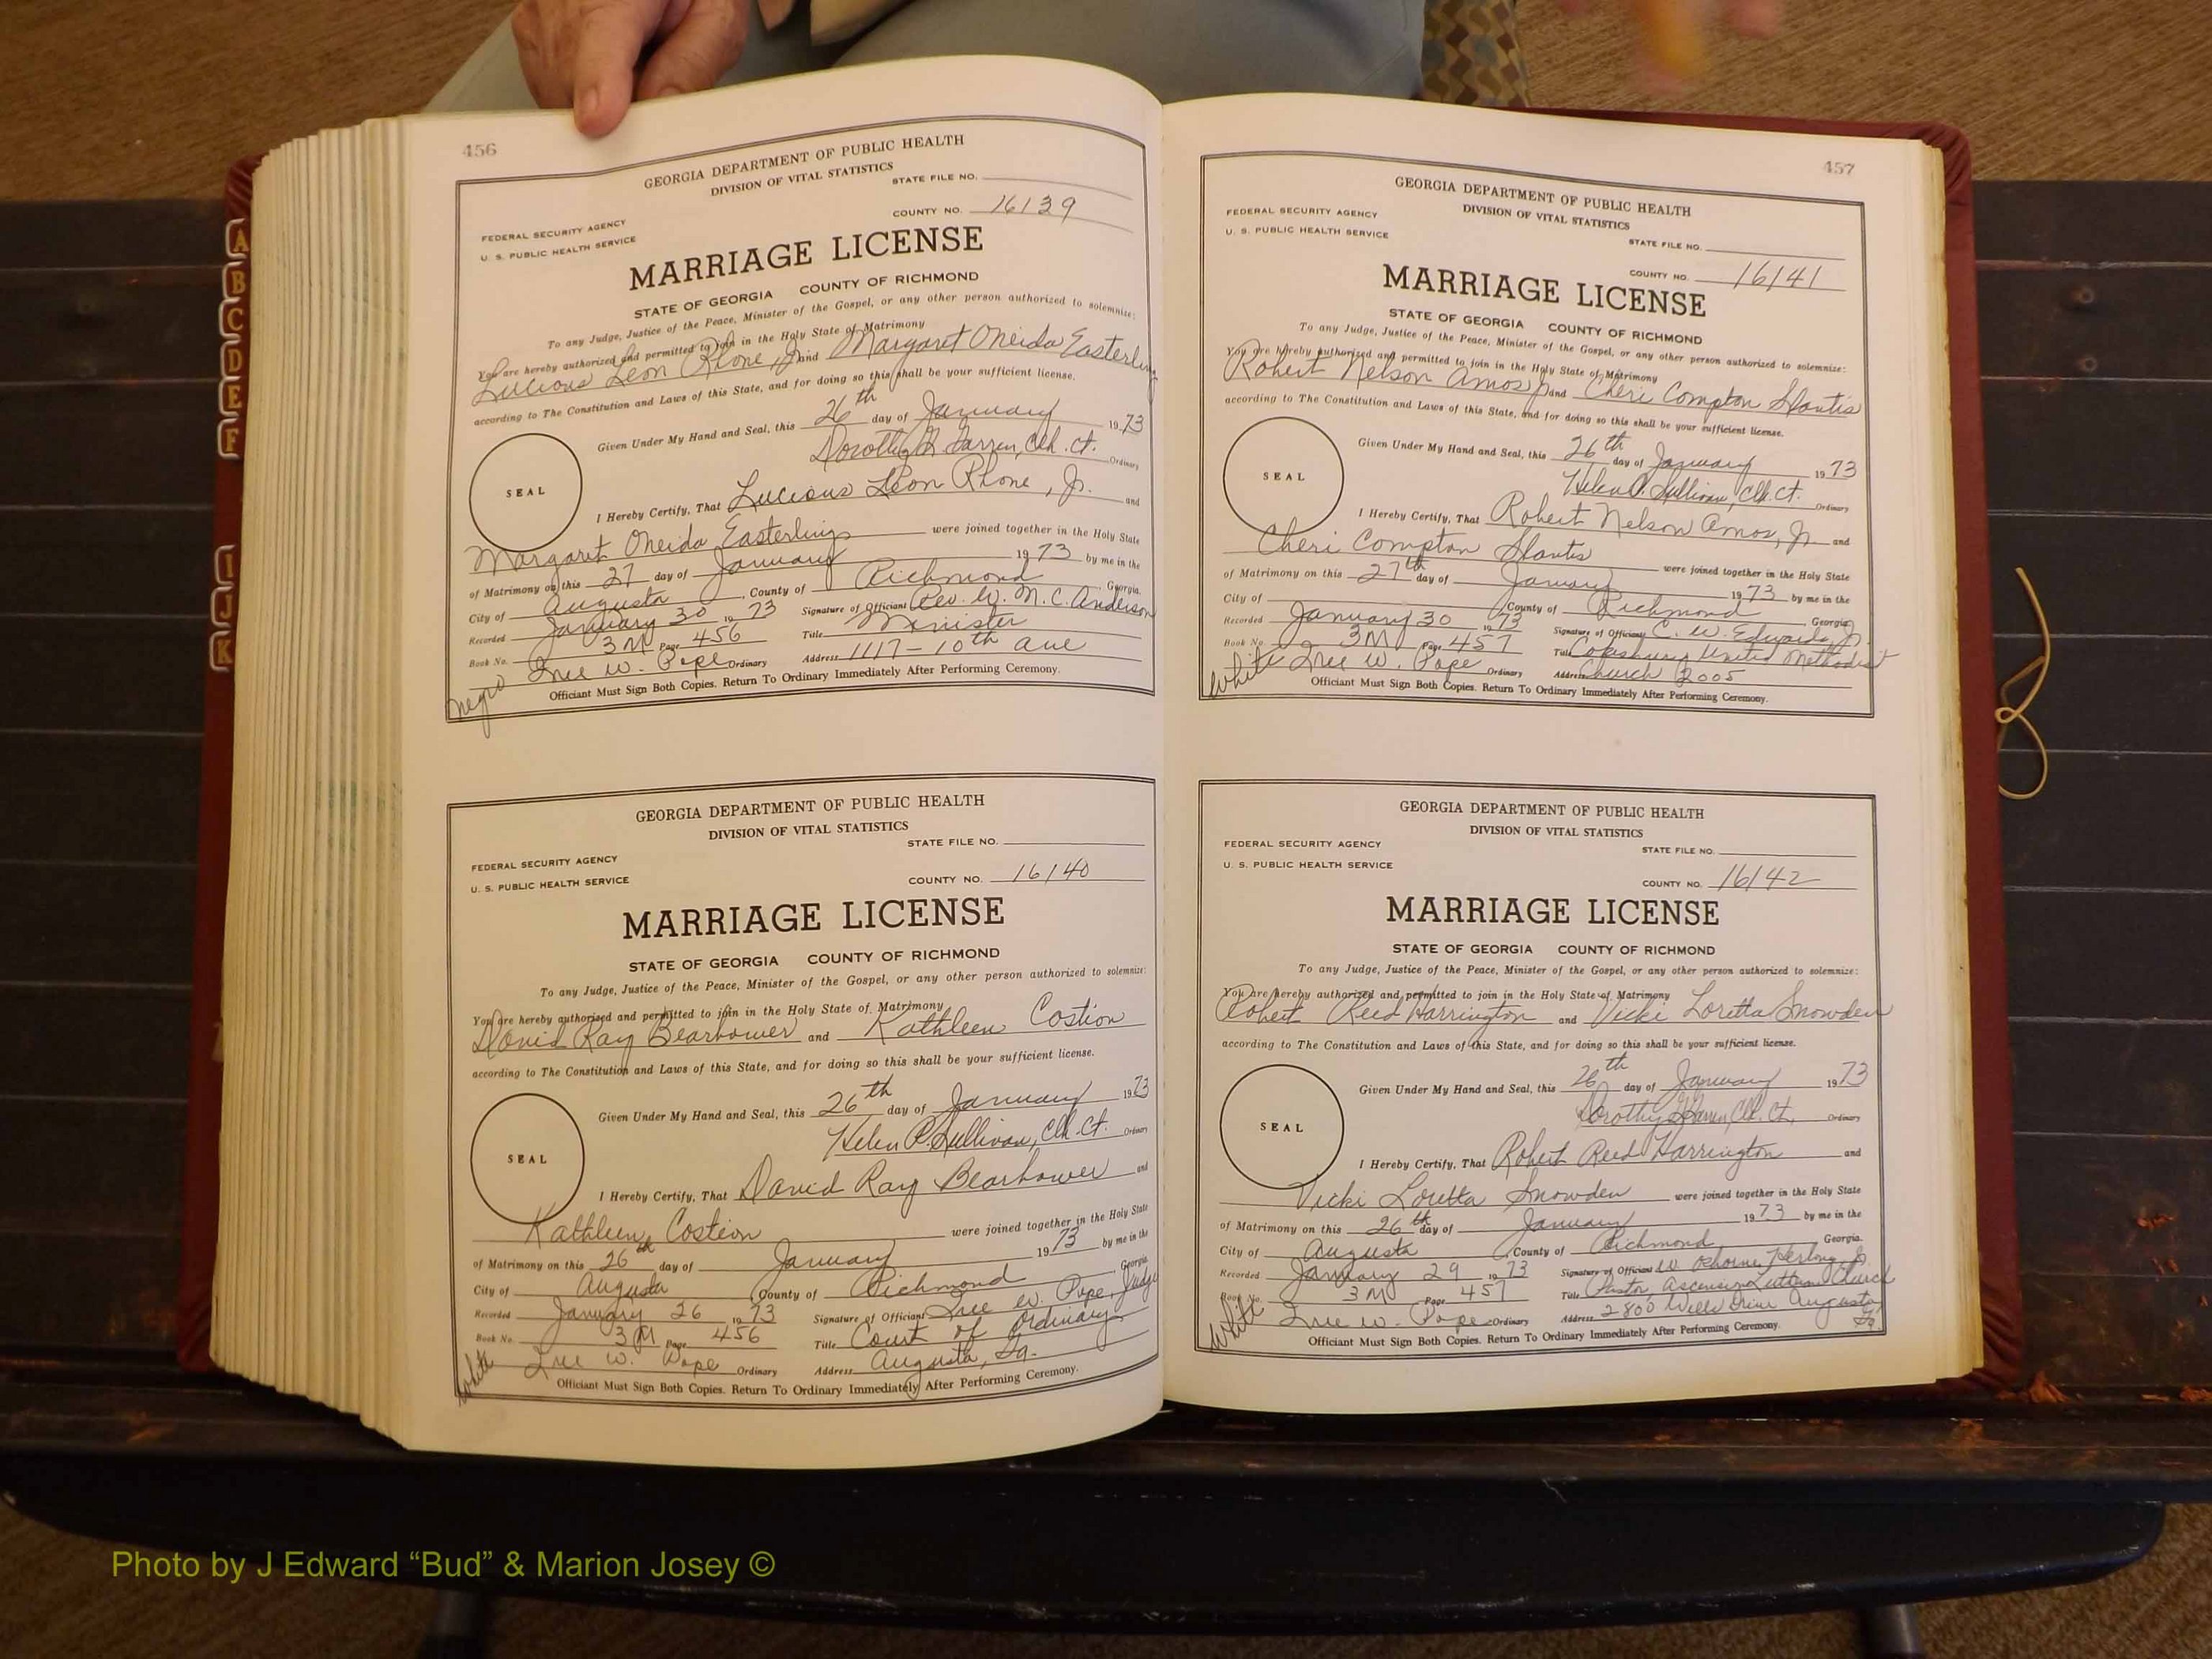 456
GEORGIA DEPARTMENT OF PUBLIC HEALTH
DIVISION OF VITAL STATISTICS
STATE FILE NO.
FEDERAL SECURITY AGENCY
COUNTY NO. 16139
U. S. PUBLIC HEALTH SERVICE
MARRIAGE LICENSE
STATE OF GEORGIA COUNTY OF RICHMOND
To any Judge, Justice of the Peace, Minister of the Gospel, or any other person authorized to solemnize:
You are hereby authorized and permitted to join in the Holy State of Matrimony
Lucious Leon Rhone, Jr. and Margaret Oneida Easterling
according to The Constitution and Laws of this State, and for doing so this shall be your sufficient license.
Given Under My Hand and Seal, this 26th day of January 1973
Dorothy Clk. Ct. Ordinary
SEAL
I Hereby Certify, That Lucious Leon Rhone, Jr. and
Margaret Oneida Easterling were joined together in the Holy State
of Matrimony on this 27 day of January 1973 by me in the
City of Augusta, County of Richmond Georgia.
Recorded January 30 1973 Signature of Officiant Rev. W. M. C. Anderson
Book No. 3M Page 456 Title Minister
W. Pope Ordinary Address 1117-10th Ave
Negro
Officiant Must Sign Both Copies. Return To Ordinary Immediately After Performing Ceremony.
GEORGIA DEPARTMENT OF PUBLIC HEALTH
DIVISION OF VITAL STATISTICS
STATE FILE NO.
FEDERAL SECURITY AGENCY
U. S. PUBLIC HEALTH SERVICE
COUNTY NO. 16140
MARRIAGE LICENSE
STATE OF GEORGIA COUNTY OF RICHMOND
To any Judge, Justice of the Peace, Minister of the Gospel, or any other person authorized to solemnize:
You are hereby authorized and permitted to join in the Holy State of Matrimony
David Ray Bearhower and Kathleen Costion
according to The Constitution and Laws of this State, and for doing so this shall be your sufficient license.
Given Under My Hand and Seal, this 26th day of January 1973
Helen P. Sullivan, Clk. Ct. Ordinary
SEAL
I Hereby Certify, That David Ray Bearhower and
Kathleen Costion were joined together in the Holy State
of Matrimony on this 26th day of January 1973 by me in the
City of Augusta County of Richmond Georgia.
Recorded January 26 1973 Signature of Officiant W. Pope, Judge
Book No. 3M Page 456 Title Court of Ordinary
W. Pope Ordinary Address Augusta, Ga.
White
Officiant Must Sign Both Copies. Return To Ordinary Immediately After Performing Ceremony.
457
GEORGIA DEPARTMENT OF PUBLIC HEALTH
DIVISION OF VITAL STATISTICS
FEDERAL SECURITY AGENCY
U. S. PUBLIC HEALTH SERVICE
STATE FILE NO.
COUNTY NO. 16141
MARRIAGE LICENSE
STATE OF GEORGIA COUNTY OF RICHMOND
To any Judge, Justice of the Peace, Minister of the Gospel, or any other person authorized to solemnize:
You are hereby authorized and permitted to join in the Holy State of Matrimony
Robert Nelson Amos, Jr. and Cheri Compton Slantis
according to The Constitution and Laws of this State, and for doing so this shall be your sufficient license.
Given Under My Hand and Seal, this 26th day of January 1973
Helen P. Sullivan, Clk. Ct. Ordinary
SEAL
I Hereby Certify, That Robert Nelson Amos, Jr. and
Cheri Compton Slantis were joined together in the Holy State
of Matrimony on this 27th day of January 1973 by me in the
City of County of Richmond Georgia
Recorded January 30 1973 Signature of Officiant C. W. Edwards, Jr.
Book No. 3M Page 457 Title United Methodist
White W. Pope Ordinary Address Church 2005
Officiant Must Sign Both Copies. Return To Ordinary Immediately After Performing Ceremony.
GEORGIA DEPARTMENT OF PUBLIC HEALTH
DIVISION OF VITAL STATISTICS
FEDERAL SECURITY AGENCY
STATE FILE NO.
U. S. PUBLIC HEALTH SERVICE
COUNTY NO. 16142
MARRIAGE LICENSE
STATE OF GEORGIA COUNTY OF RICHMOND
To any Judge, Justice of the Peace, Minister of the Gospel, or any other person authorized to solemnize:
You are hereby authorized and permitted to join in the Holy State of Matrimony
Robert Reed Harrington and Vicki Loretta Snowden
according to The Constitution and Laws of this State, and for doing so this shall be your sufficient license.
Given Under My Hand and Seal, this 26th day of January 1973
Dorothy Clk. Ct. Ordinary
SEAL
I Hereby Certify, That Robert Reed Harrington and
Vicki Loretta Snowden were joined together in the Holy State
of Matrimony on this 26th day of January 1973 by me in the
City of Augusta County of Richmond Georgia.
Recorded January 29 1973 Signature of Officiant W. Osborne Herlong, Jr.
Book No. 3M Page 457 Title Pastor, Ascension Lutheran Church
White W. Pope Ordinary Address 2800 Wells Drive Augusta Ga.
Officiant Must Sign Both Copies. Return To Ordinary Immediately After Performing Ceremony.
A
B
C
D
E
F
I
J
K
Photo by J Edward “Bud” & Marion Josey ©